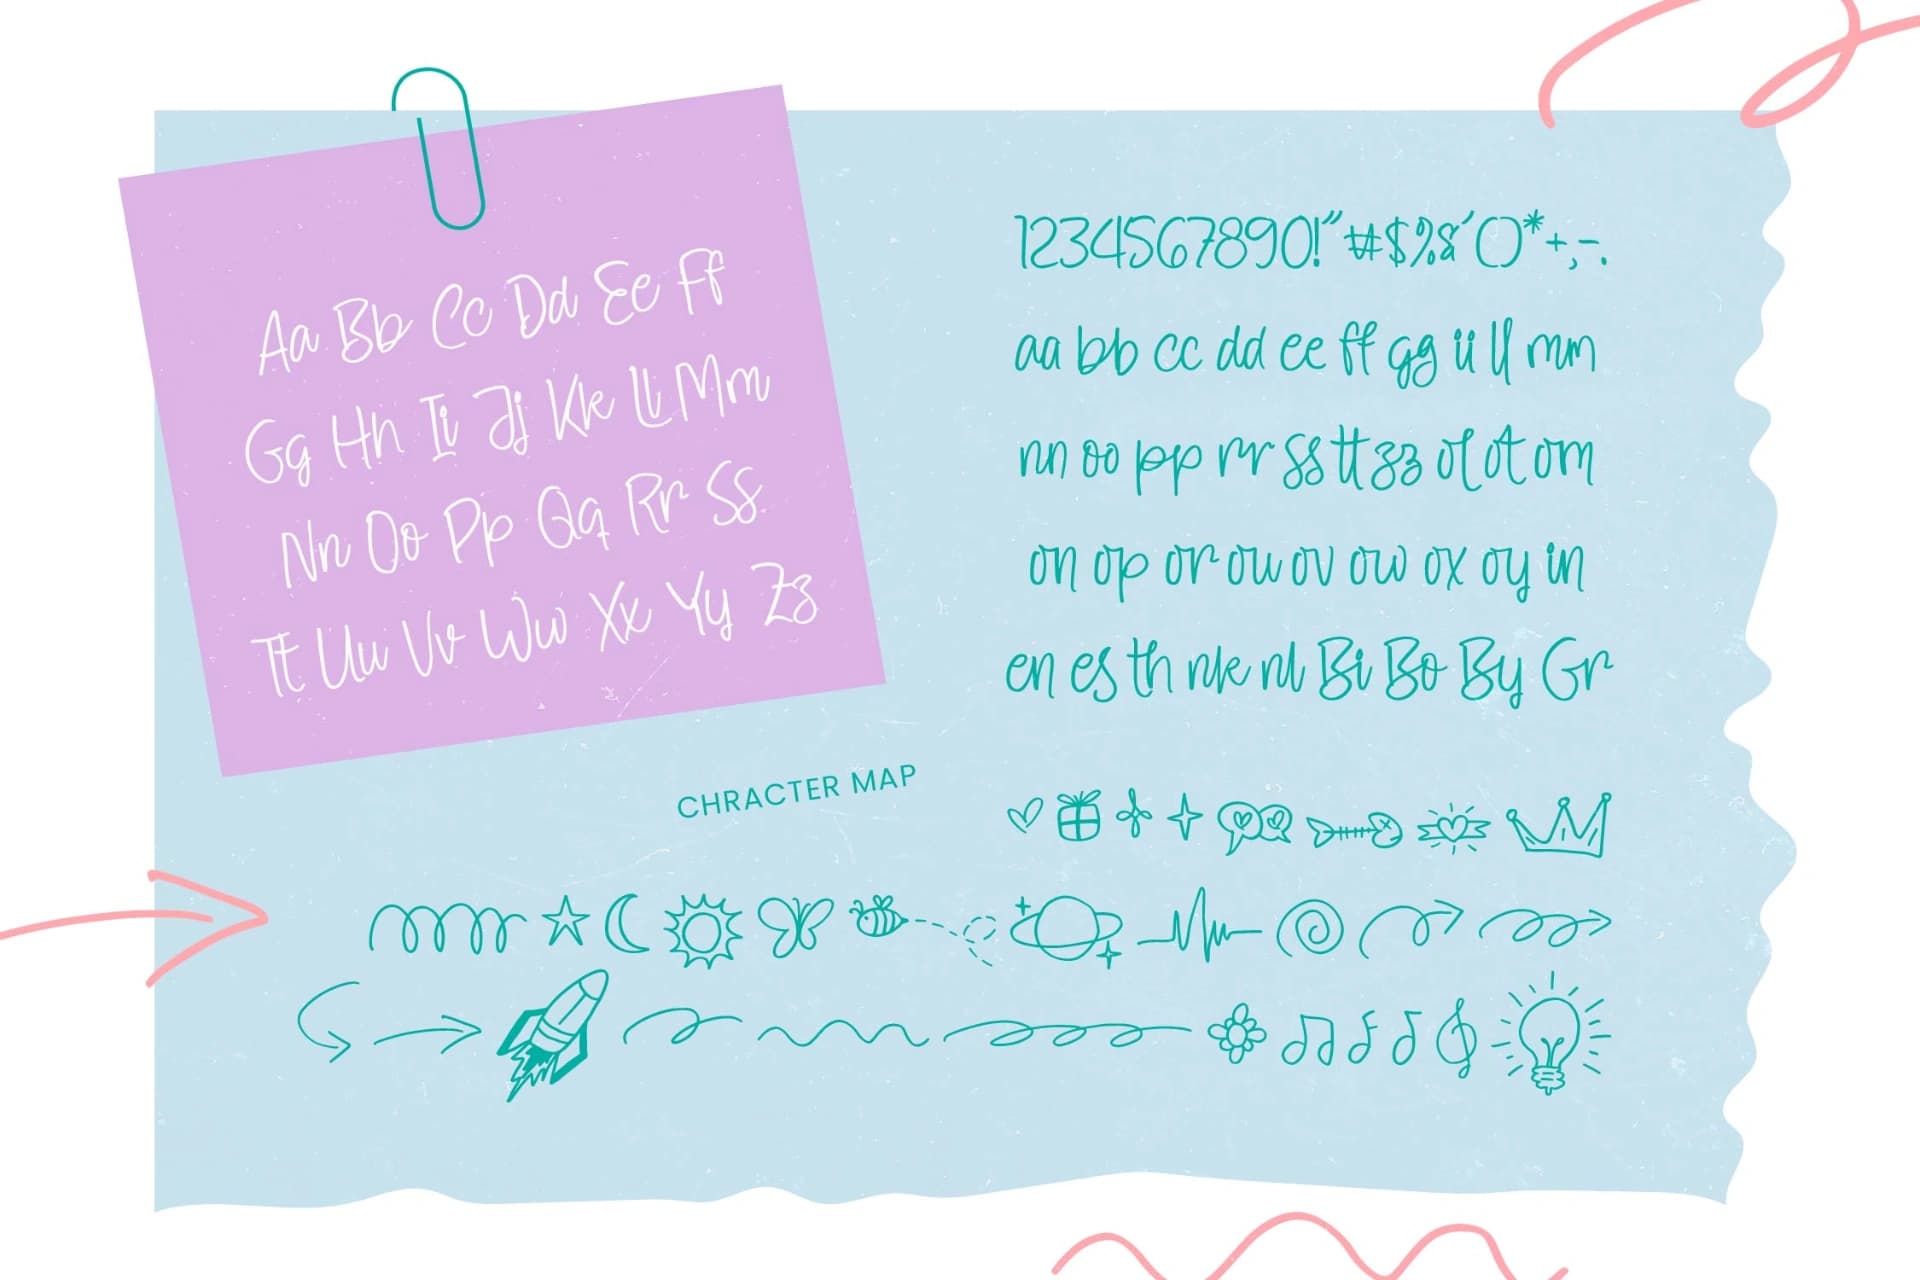 Aa Bb Cc Dd Ee Ff
Gg Hh Ii Jj Kk Ll Mm
Nn Oo Pp Qq Rr Ss
Tt Uu Vv Ww Xx Yy Zz
1234567890!"#$%&'()*+,-.
aa bb cc dd ee ff gg ii ll mm
nn oo pp rr ss tt zz ol ot om
on op or ou ov ow ox oy in
en es th nk nl Bi Bo By Gr
CHRACTER MAP